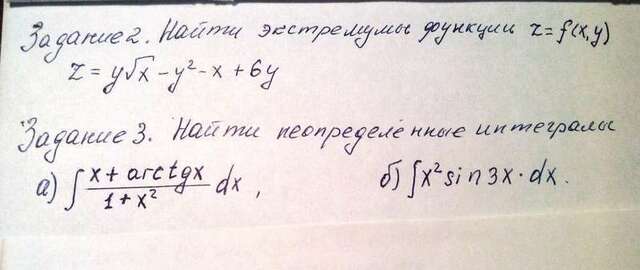 Задание 2. Найти экстремумы функции z=f(x,y)
z = y√x - y² - x + 6y
Задание 3. Найти неопределенные интегралы
а) ∫ (x + arctgx)/(1 + x²) dx , б) ∫x² sin 3x · dx.